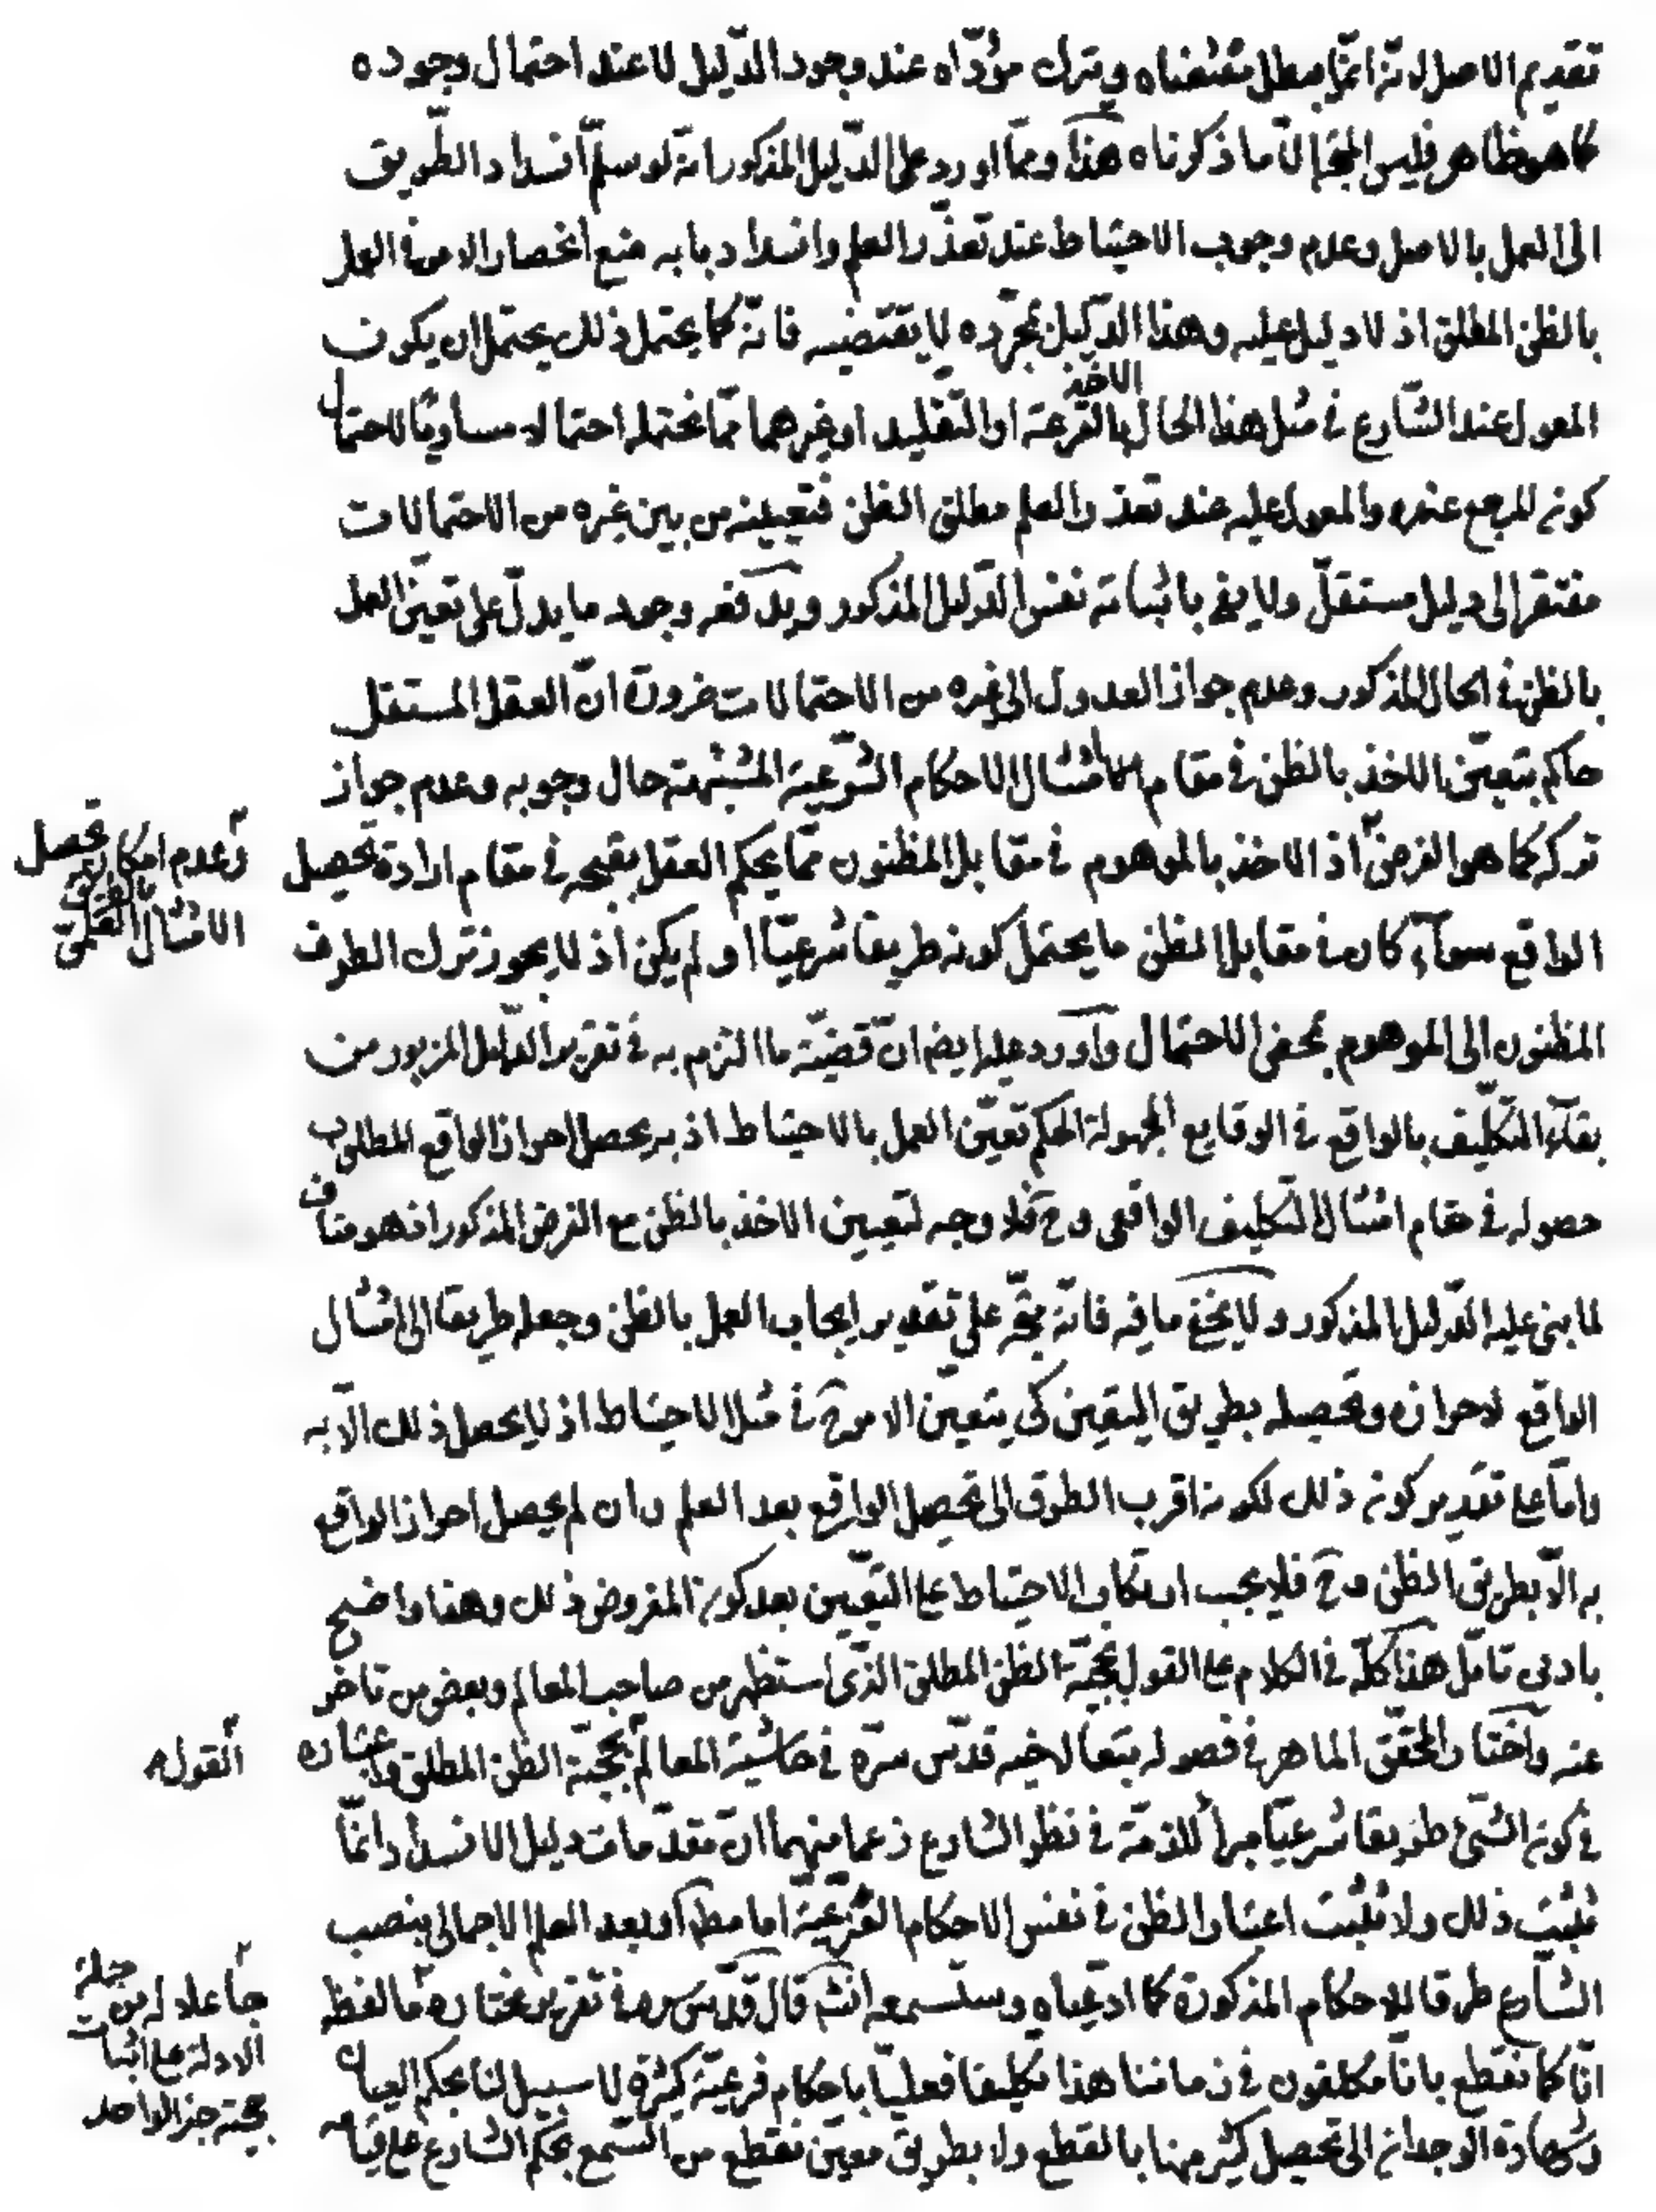 تقديم الاصل لانّه انّما يبطل مقتضاه ويترك مؤدّاه عند وجود الدّليل لا عند احتمال وجوده
كما هو ظاهر فليس المتّجه الّا ما ذكرناه هذا وممّا اورد على الدّليل المذكور انّه لو سلّم انسداد الطّريق
الى العمل بالاصل وعدم وجوب الاحتياط عند تعذّر العلم وانسداد بابه منع انحصار الامر في العمل
بالظن المطلق اذ لا دليل عليه وهذا الدّليل بمجرّده لا يقتضيه فانّه كما يحتمل ذلك يحتمل ان يكون
المعول عند الشّارع في مثل هذا الحال الاخذ بالقرعة او التّقليد او غيرهما ممّا نحتمله احتمالا مساويا لاحتمال
كونه المرجع عنده والمعول عليه عند تعذر العلم مطلق الظن فتعيينه من بين غيره من الاحتمالات
مفتقر الى دليل مستقلّ ولا يفي باثباته نفس الدّليل المذكور ويدفعه وجود ما يدلّ على تعيّن العمل
بالظن في الحال المذكور وعدم جواز العدول الى غيره من الاحتمالات ضرورة انّ العقل المستقل
حاكم بتعيّن الاخذ بالظن في مقام امتثال الاحكام الشّرعيّة المشتبهة حال وجوبه وعدم جواز
تركه كما هو الفرض اذ الاخذ بالموهوم في مقابل المظنون ممّا يحكم العقل بقبحه في مقام ارادة تحصيل
وعدم امكان تحصيل
الامتثال العلمي
الواقع سوآء كان في مقابل الظن ما يحتمل كونه طريقا شرعيّا او لم يكن اذ لا يجوز ترك الطرف
المظنون الى الموهوم بمحض الاحتمال واورد عليه ايضا انّ قضيّة ما التزم به في تقرير الدّليل المزبور من
بقآء التكليف بالواقع في الوقايع المجهولة الحكم تعيّن العمل بالاحتياط اذ به يحصل احراز الواقع المطلوب
حصوله في مقام امتثال التّكليف الواقعي وح فلا وجه لتعيين الاخذ بالظن مع الفرض المذكور اذ هو مناف
لما بنى عليه الدّليل المذكور ولا يخفى ما فيه فانّه يتّجه على تقدير ايجاب العمل بالظن وجعله طريقا الى امتثال
الواقع لاحرازه وتحصيله بطريق اليقين كي يتعيّن الامر ح في مثل الاحتياط اذ لا يحصل ذلك الّا به
وامّا على تقدير كونه ذلك لكونه اقرب الطرق الى تحصيل الواقع بعد العلم وان لم يحصل احراز الواقع
به الّا بطريق الظن وح فلا يجب ارتكاب الاحتياط على التعيين بعد كونه المفروض ذلك وهذا واضح
بادنى تامّل هذا كلّه في الكلام على القول بحجيّة الظن المطلق الذّي استظهر من صاحب المعالم وبعض من تاخر
عنه واختار المحقّق الماهر في فصوله تبعا لاخيه قدّس سرّه في حاشية المعالم بحجيّة الظن المطلق واعتباره
القول
في كونه الشّئ طريقا شرعيّا مبرأ للذمّة في نظر الشارع زعما منهما انّ مقدّمات دليل الانسداد انمّا
تثبت ذلك ولا تثبت اعتبار الظن في نفس الاحكام الفرعيّة اما مط او بعد العلم الاجمالي بنصب
الشّارع طرقا للاحكام المذكورة كما ادعياه وستسمعه انش قال قدّس سره في تقرير مختاره ما لفظه
جاعلا له من جملة
الادلة على اثبات
حجيّة خبر الواحد
انّا كما نقطع بانّا مكلفون في زماننا هذا تكليفا فعليّا باحكام فرعيّة كثيرة لا سبيل لنا بحكم العيان
وشهادة الوجدان الى تحصيل كثير منها بالقطع ولا بطريق معيّن نقطع من السّمع بحكم الشارع على قيامه